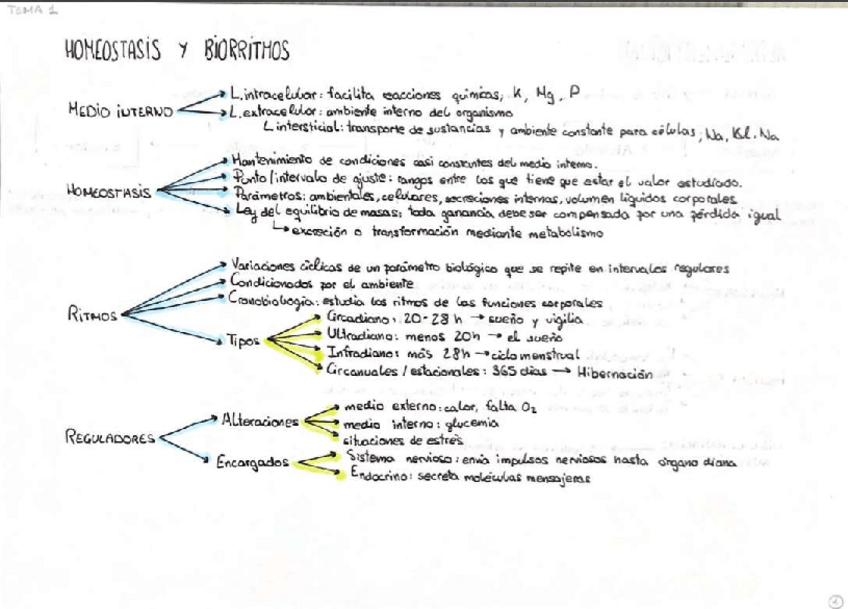 TEMA 1
HOMEOSTASIS Y BIORRITMOS
MEDIO INTERNO
L.intracelular: facilita reacciones químicas, K, Mg, P
L.extracelular: ambiente interno del organismo
L intersticial: transporte de sustancias y ambiente constante para células; Na, Kl. Na
HOMEOSTASIS
Mantenimiento de condiciones casi constantes del medio interno.
Punto/intervalo de ajuste: rangos entre los que tiene que estar el valor estudiado.
Parámetros: ambientales, celulares, secreciones internas, volumen líquidos corporales
Ley del equilibrio de masas: toda ganancia debe ser compensada por una pérdida igual
excreción o transformación mediante metabolismo
RITMOS
Variaciones cíclicas de un parámetro biológico que se repite en intervalos regulares
Condicionados por el ambiente
Cronobiología: estudia los ritmos de las funciones corporales
Tipos
Circadiano: 20-28 h → sueño y vigilia
Ultradiano: menos 20h → el sueño
Infradiano: más 28h → ciclo menstrual
Circanuales / estacionales: 365 días → Hibernación
REGULADORES
Alteraciones
medio externo: calor, falta O₂
medio interno: glucemia
situaciones de estrés
Encargados
Sistema nervioso: envía impulsos nerviosos hasta órgano diana
Endocrino: secreta moléculas mensajeras
1